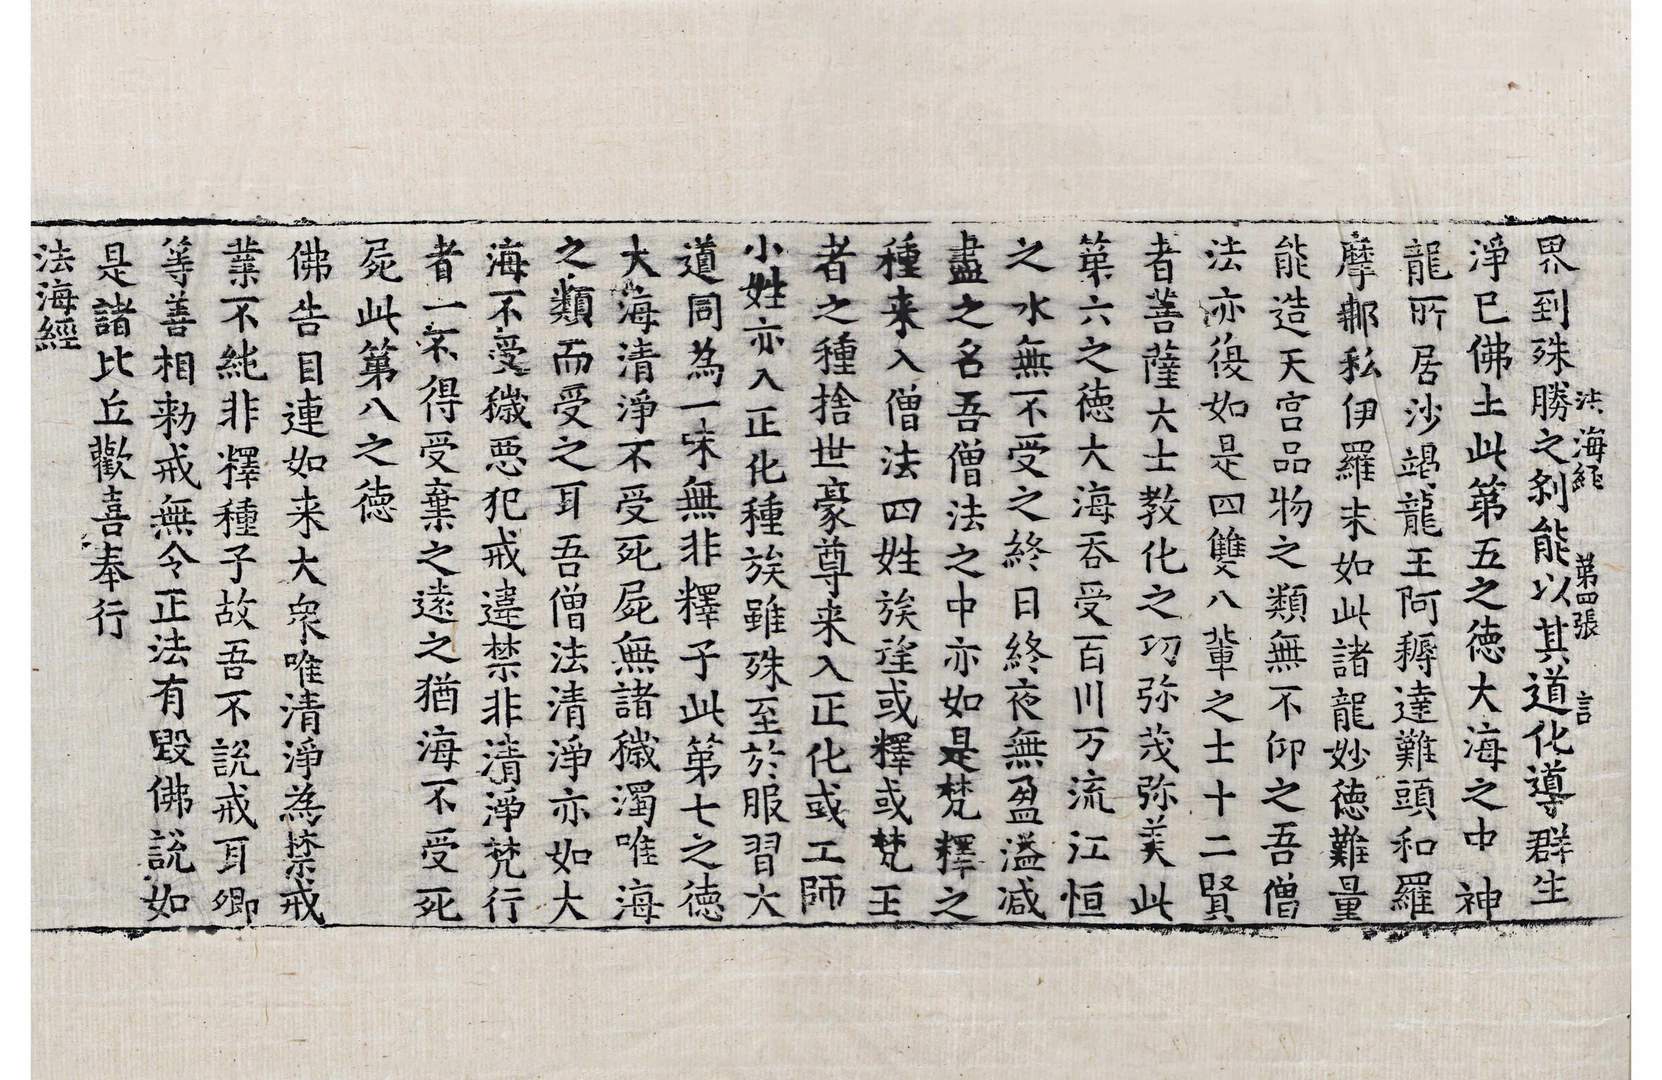 法海經 第四張 言
界到殊勝之刹能以其道化導群生
淨已佛土此第五之德大海之中神
龍所居沙竭龍王阿耨達難頭和羅
摩那私伊羅末如此諸龍妙德難量
能造天宮品物之類無不仰之吾僧
法亦復如是四雙八輩之士十二賢
者菩薩大士教化之功弥茂弥美此
第六之德大海吞受百川万流江恒
之水無不受之終日終夜無盈溢減
盡之名吾僧法之中亦如是梵釋之
種来入僧法四姓族望或釋或梵王
者之種捨世豪尊来入正化或工師
小姓亦入正化種族雖殊至於服習大
道同為一味無非釋子此第七之德
大海清淨不受死屍無諸穢濁唯海
之類而受之耳吾僧法清淨亦如大
海不受穢惡犯戒違禁非清淨梵行
者一不得受棄之遠之猶海不受死
屍此第八之德
佛告目連如来大衆唯清淨為禁戒
業不純非釋種子故吾不說戒耳卿
等善相勑戒無令正法有毀佛說如
是諸比丘歡喜奉行
法海經